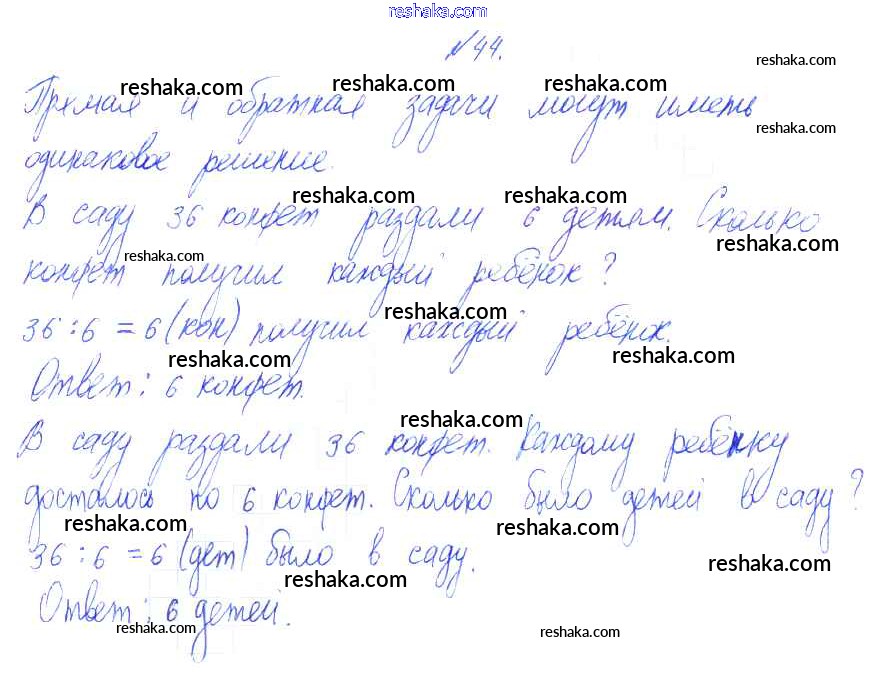 reshaka.com
№44.
reshaka.com
reshaka.com reshaka.com reshaka.com
Прямая и обратная задачи могут иметь
reshaka.com
одинаковое решение.
reshaka.com reshaka.com
В саду 36 конфет раздали 6 детям. Сколько
reshaka.com
reshaka.com
конфет получил каждый ребёнок?
reshaka.com
36:6=6(кон) получил каждый ребёнок.
reshaka.com reshaka.com
Ответ: 6 конфет.
reshaka.com
В саду раздали 36 конфет. Каждому ребёнку
досталось по 6 конфет. Сколько было детей в саду?
reshaka.com reshaka.com
36:6=6(дет) было в саду.
reshaka.com
reshaka.com
Ответ: 6 детей.
reshaka.com
reshaka.com